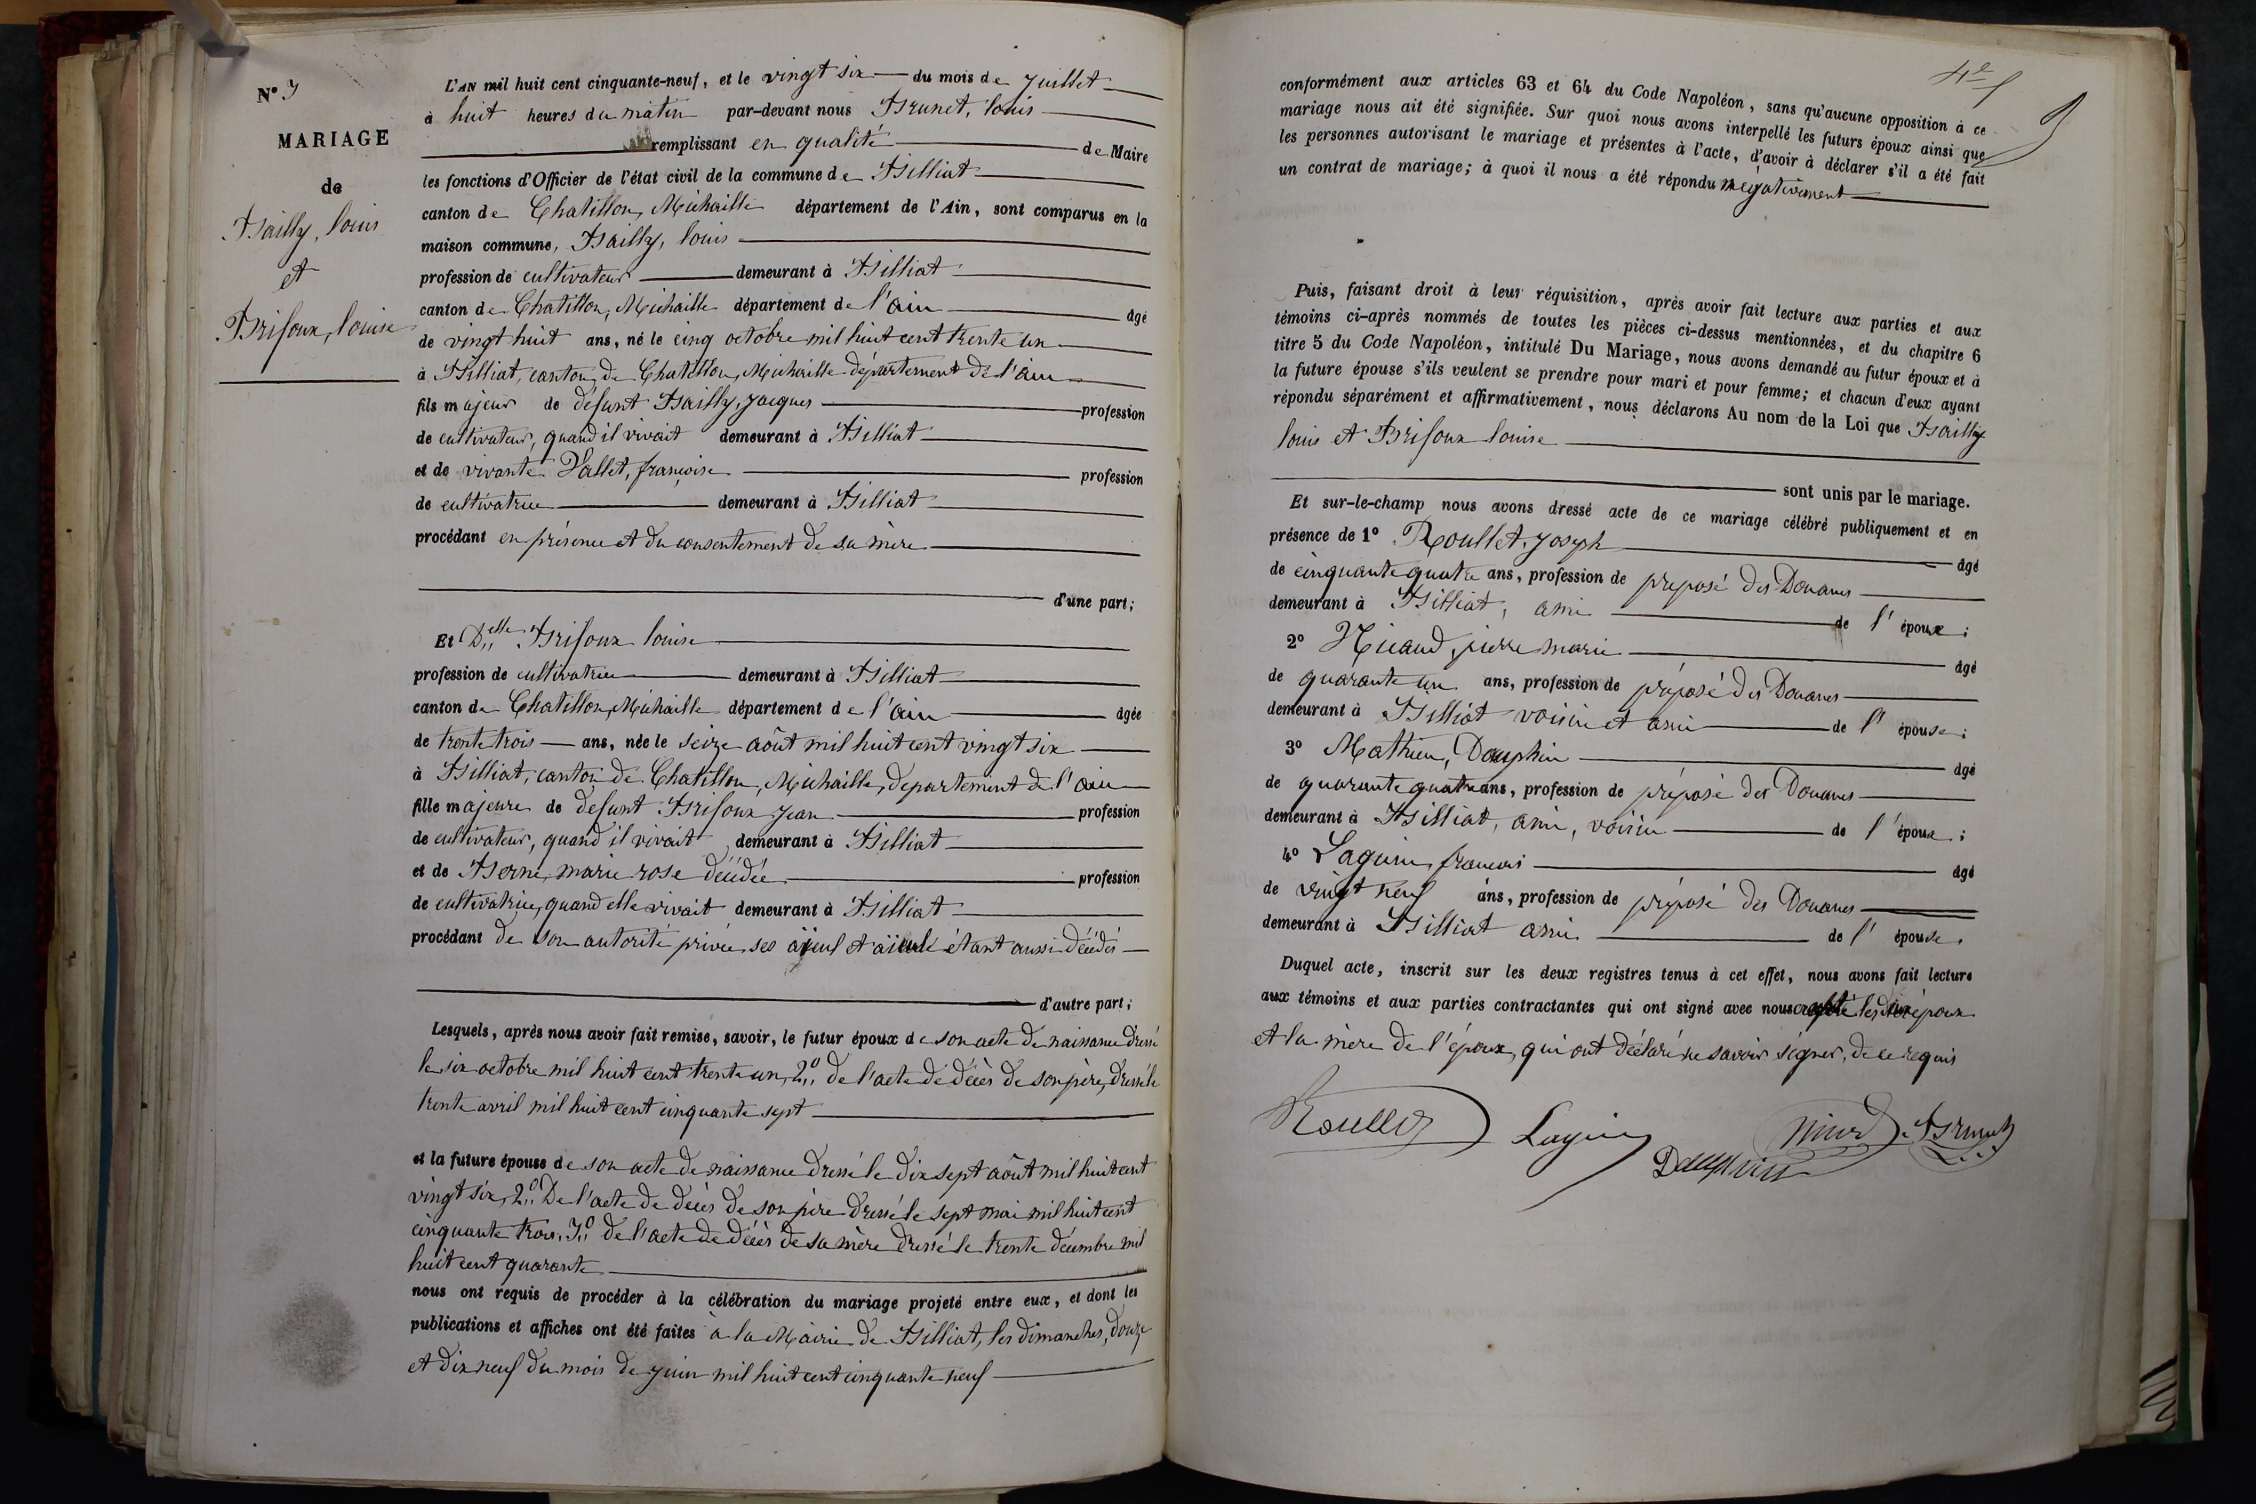 N° 3
MARIAGE
de
Bailly, louis
et
Brifoux, louise
L'AN mil huit cent cinquante-neuf, et le vingt six du mois de juillet
à huit heures du matin par-devant nous Brunet, louis
remplissant en qualité de Maire
les fonctions d'Officier de l'état civil de la commune de Billiat
canton de Chatillon, Michaille département de l'Ain, sont comparus en la
maison commune, Bailly, louis
profession de cultivateur demeurant à Billiat
canton de Chatillon, Michaille département de l'ain âgé
de vingt huit ans, né le cinq octobre mil huit cent trente un
à Billiat, canton de Chatillon, Michaille département de l'ain
fils majeur de défunt Bailly, jacques profession
de cultivateur, quand il vivait demeurant à Billiat
et de vivante Vallet, françoise profession
de cultivatrice demeurant à Billiat
procédant en présence et du consentement de sa mère
d'une part;
Et Delle Brifoux louise
profession de cultivatrice demeurant à Billiat
canton de Chatillon, Michaille département de l'ain âgée
de trente trois ans, née le seize août mil huit cent vingt six
à Billiat, canton de Chatillon, Michaille, département de l'ain
fille majeure de defunt Brifoux jean profession
de cultivateur, quand il vivait demeurant à Billiat
et de Berne, marie rose décédée profession
de cultivatrice, quand elle vivait demeurant à Billiat
procédant de son autorité privée ses aïeul et aïeule étant aussi décédés
d'autre part;
Lesquels, après nous avoir fait remise, savoir, le futur époux de son acte de naissance dressé
le six octobre mil huit cent trente un, 2° de l'acte de décès de son père, dressé le
trente avril mil huit cent cinquante sept
et la future épouse de son acte de naissance dressé le dix sept août mil huit cent
vingt six, 2° De l'acte de décès de son père dressé le sept mai mil huit cent
cinquante trois. 3° de l'acte de décès de sa mère dressé le trente décembre mil
huit cent quarante
nous ont requis de procéder à la célébration du mariage projeté entre eux, et dont les
publications et affiches ont été faites à la Mairie de Billiat, les dimanches, douze
et dix neuf du mois de juin mil huit cent cinquante neuf
conformément aux articles 63 et 64 du Code Napoléon, sans qu'aucune opposition à ce
mariage nous ait été signifiée. Sur quoi nous avons interpellé les futurs époux ainsi que
les personnes autorisant le mariage et présentes à l'acte, d'avoir à déclarer s'il a été fait
un contrat de mariage; à quoi il nous a été répondu négativement
Puis, faisant droit à leur réquisition, après avoir fait lecture aux parties et aux
témoins ci-après nommés de toutes les pièces ci-dessus mentionnées, et du chapitre 6
titre 5 du Code Napoléon, intitulé Du Mariage, nous avons demandé au futur époux et à
la future épouse s'ils veulent se prendre pour mari et pour femme; et chacun d'eux ayant
répondu séparément et affirmativement, nous déclarons Au nom de la Loi que Bailly
louis et Brifoux louise
sont unis par le mariage.
Et sur-le-champ nous avons dressé acte de ce mariage célébré publiquement et en
présence de 1° Roullet, joseph âgé
de cinquante quatre ans, profession de preposé des Douanes
demeurant à Billiat, ami de l'époux;
2° Nicaud, pierre marie âgé
de quarante un ans, profession de préposé des Douanes
demeurant à Billiat voisin et ami de l'épouse;
3° Mathieu, Dauphin âgé
de quarante quatre ans, profession de préposé des Douanes
demeurant à Billiat, ami, voisin de l'époux;
4° Laguin, francois âgé
de vingt neuf ans, profession de préposé des Douanes
demeurant à Billiat ami de l'épouse.
Duquel acte, inscrit sur les deux registres tenus à cet effet, nous avons fait lecture
aux témoins et aux parties contractantes qui ont signé avec nous excepté les époux
et la mère de l'époux, qui ont déclaré ne savoir signer, de ce requis
Roullet Laguin Dauphin Nicaud Brunet